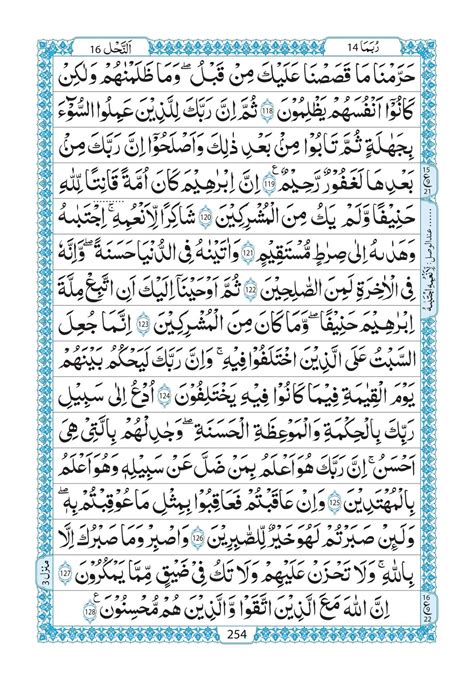 رُبَمَا 14
اَلنَّحْل 16
حَرَّمْنَا مَا قَصَصْنَا عَلَيْكَ مِنْ قَبْلُ ۖ وَمَا ظَلَمْنٰهُمْ وَلٰكِنْ
كَانُوْٓا اَنْفُسَهُمْ يَظْلِمُوْنَ 118 ثُمَّ اِنَّ رَبَّكَ لِلَّذِيْنَ عَمِلُوا السُّوْٓءَ
بِجَهَالَةٍ ثُمَّ تَابُوْا مِنْ بَعْدِ ذٰلِكَ وَاَصْلَحُوْٓا اِنَّ رَبَّكَ مِنْ
بَعْدِهَا لَغَفُوْرٌ رَّحِيْمٌ 119 اِنَّ اِبْرٰهِيْمَ كَانَ اُمَّةً قَانِتًا لِّلّٰهِ
حَنِيْفًا ؕ وَلَمْ يَكُ مِنَ الْمُشْرِكِيْنَ 120 شَاكِرًا لِّاَنْعُمِهٖ ؕ اِجْتَبٰىهُ
وَهَدٰىهُ اِلٰى صِرَاطٍ مُّسْتَقِيْمٍ 121 وَاٰتَيْنٰهُ فِى الدُّنْيَا حَسَنَةً ؕ وَاِنَّهٗ
فِى الْاٰخِرَةِ لَمِنَ الصّٰلِحِيْنَ 122 ثُمَّ اَوْحَيْنَآ اِلَيْكَ اَنِ اتَّبِعْ مِلَّةَ
اِبْرٰهِيْمَ حَنِيْفًا ؕ وَمَا كَانَ مِنَ الْمُشْرِكِيْنَ 123 اِنَّمَا جُعِلَ
السَّبْتُ عَلَى الَّذِيْنَ اخْتَلَفُوْا فِيْهِ ؕ وَاِنَّ رَبَّكَ لَيَحْكُمُ بَيْنَهُمْ
يَوْمَ الْقِيٰمَةِ فِيْمَا كَانُوْا فِيْهِ يَخْتَلِفُوْنَ 124 اُدْعُ اِلٰى سَبِيْلِ
رَبِّكَ بِالْحِكْمَةِ وَالْمَوْعِظَةِ الْحَسَنَةِ ۖ وَجَادِلْهُمْ بِالَّتِيْ هِيَ
اَحْسَنُ ؕ اِنَّ رَبَّكَ هُوَ اَعْلَمُ بِمَنْ ضَلَّ عَنْ سَبِيْلِهٖ وَهُوَ اَعْلَمُ
بِالْمُهْتَدِيْنَ 125 وَاِنْ عَاقَبْتُمْ فَعَاقِبُوْا بِمِثْلِ مَا عُوْقِبْتُمْ بِهٖ ؕ
وَلَئِنْ صَبَرْتُمْ لَهُوَ خَيْرٌ لِّلصّٰبِرِيْنَ 126 وَاصْبِرْ وَمَا صَبْرُكَ اِلَّا
بِاللّٰهِ ؕ وَلَا تَحْزَنْ عَلَيْهِمْ وَلَا تَكُ فِيْ ضَيْقٍ مِّمَّا يَمْكُرُوْنَ 127
اِنَّ اللّٰهَ مَعَ الَّذِيْنَ اتَّقَوْا وَّالَّذِيْنَ هُمْ مُّحْسِنُوْنَ 128
منزل 3
16
22
254